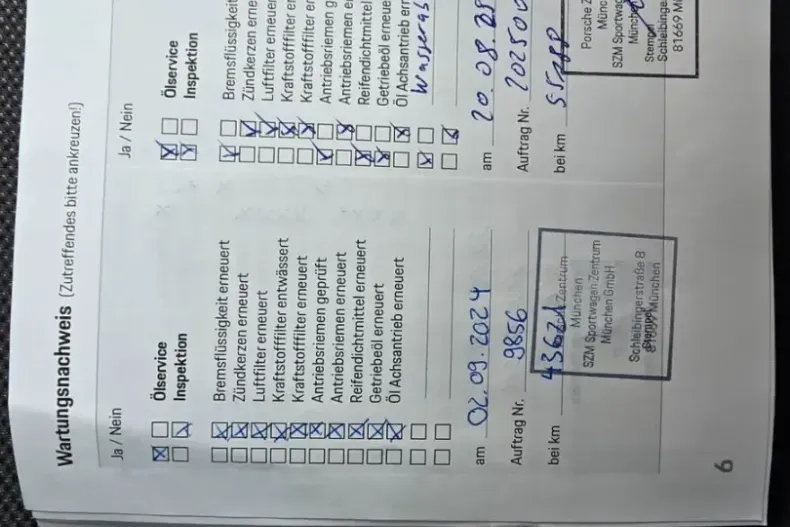 Wartungsnachweis (Zutreffendes bitte ankreuzen!)
Ja / Nein
Ölservice
Inspektion
Bremsflüssigkeit erneuert
Zündkerzen erneuert
Luftfilter erneuert
Kraftstofffilter entwässert
Kraftstofffilter erneuert
Antriebsriemen geprüft
Antriebsriemen erneuert
Reifendichtmittel erneuert
Getriebeöl erneuert
Öl Achsantrieb erneuert
am 02.09.2024
Auftrag Nr. 9856
bei km
Zentrum
München
SZM Sportwagen Zentrum
München GmbH
Schleibingerstraße 8
München
Ja / Nein
Ölservice
Inspektion
Bremsflüssigkeit
Zündkerzen erne
Luftfilter erneuer
Kraftstofffilter en
Kraftstofffilter er
Antriebsriemen g
Antriebsriemen e
Reifendichtmittel
Getriebeöl erneue
Öl Achsantrieb ern
Wasserab
am 20.08.25
Auftrag Nr. 202500
bei km
Porsche Z
Münc
SZM Sportwag
Münch
Schleibinge
81669 Mü
6